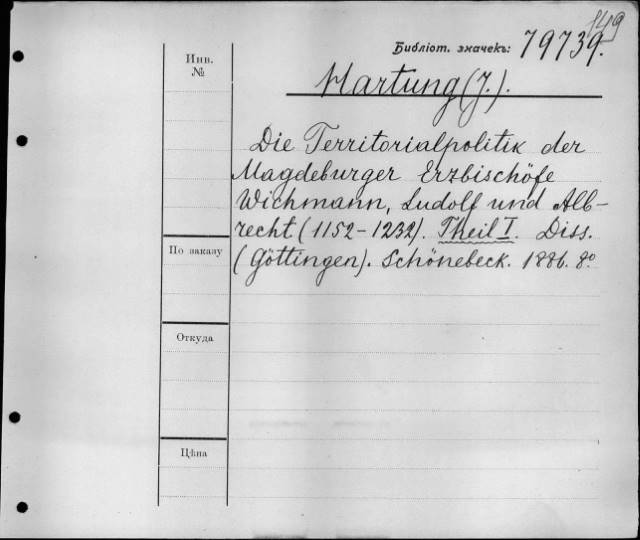 149
Библіот. значекъ: 79739.
Инв.
№
Hartung (J.).
Die Territorialpolitik der
Magdeburger Erzbischöfe
Wichmann, Ludolf und Alb-
recht (1152-1232). Theil I. Diss.
(Göttingen). Schönebeck. 1886. 8°
По заказу
Откуда
Цѣна